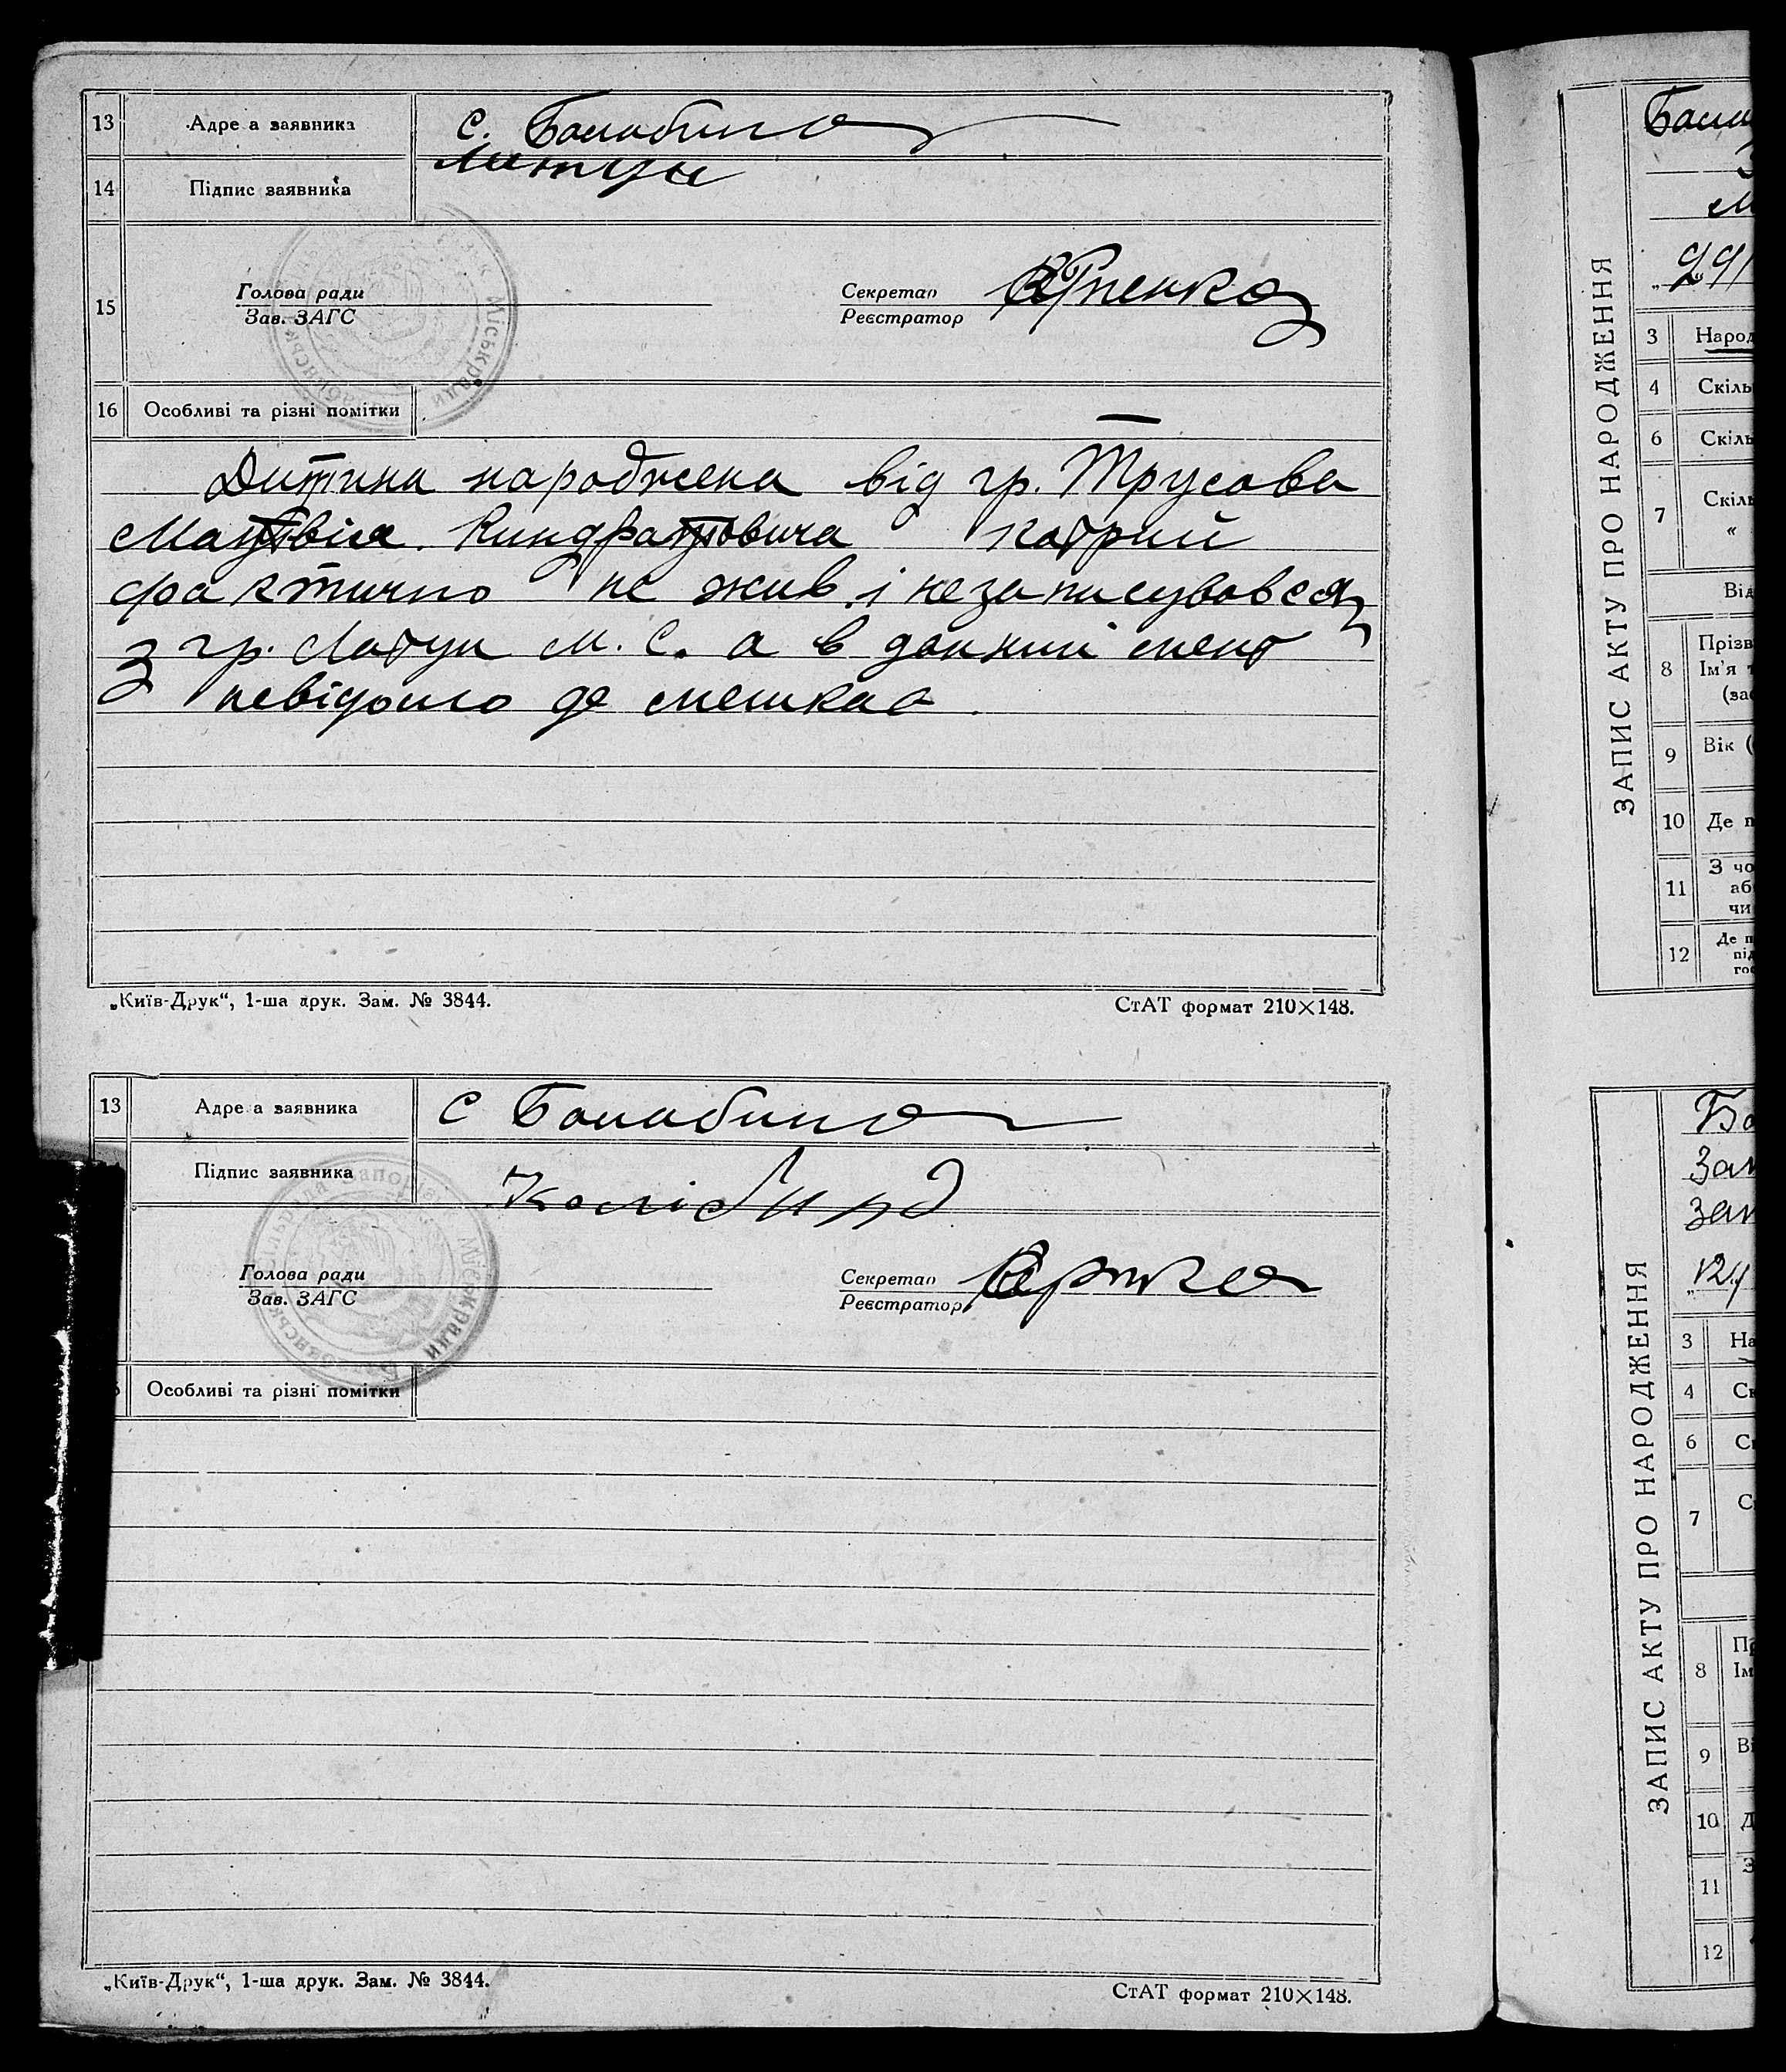 13 Адреса заявника с. Балабино
14 Підпис заявника
15
Голова ради
Зав. ЗАГС
Секретар
Реєстратор
Міськради
16 Особливі та різні помітки —
Дитина народжена від гр. Трусова
Матвія Киндратовича котрий
фактично не жив і незаписувовся
з гр. Латун М. С. а в данний мент
невідомо де мешкає.
„Київ-Друк“, 1-ша друк. Зам. № 3844.
СтАТ формат 210×148.
13 Адреса заявника с Балабино
Підпис заявника
Голова ради
Зав. ЗАГС
Секретар
Реєстратор
Міськради
Особливі та різні помітки
„Київ-Друк“, 1-ша друк. Зам. № 3844.
СтАТ формат 210×148.
ЗАПИС АКТУ ПРО НАРОДЖЕННЯ
3 Народ
4 Скіль
6 Скіль
7 Скіль
«
Від
8 Прізв
Ім'я т
(за
9 Вік (
10 Де п
11 З чо
аб
чи
12 Де п
під
го
ЗАПИС АКТУ ПРО НАРОДЖЕННЯ
Ба
Зап
зап
3 На
4 Ск
6 Ск
7 Ск
8 Пр
Ім
9 Ві
10 Д
11 З
12